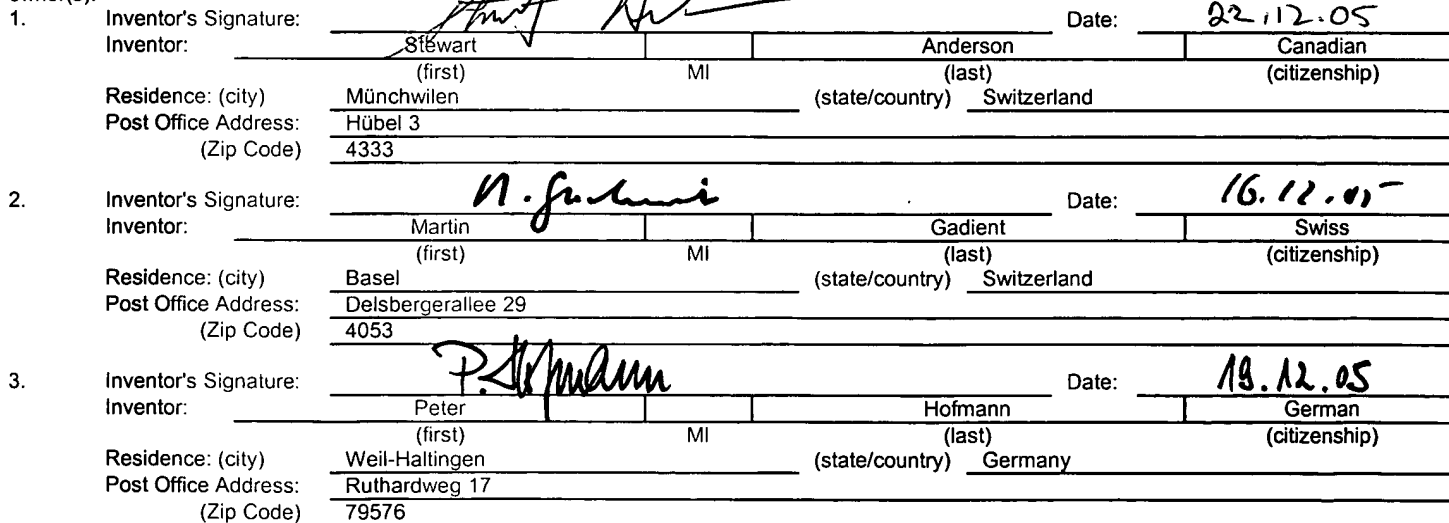 1. Inventor's Signature: Date: 22.12.05
Inventor: Stewart Anderson Canadian
(first) MI (last) (citizenship)
Residence: (city) Münchwilen (state/country) Switzerland
Post Office Address: Hübel 3
(Zip Code) 4333
2. Inventor's Signature: Date: 16.12.05
Inventor: Martin Gadient Swiss
(first) MI (last) (citizenship)
Residence: (city) Basel (state/country) Switzerland
Post Office Address: Delsbergerallee 29
(Zip Code) 4053
3. Inventor's Signature: P. Hofmann Date: 19.12.05
Inventor: Peter Hofmann German
(first) MI (last) (citizenship)
Residence: (city) Weil-Haltingen (state/country) Germany
Post Office Address: Ruthardweg 17
(Zip Code) 79576